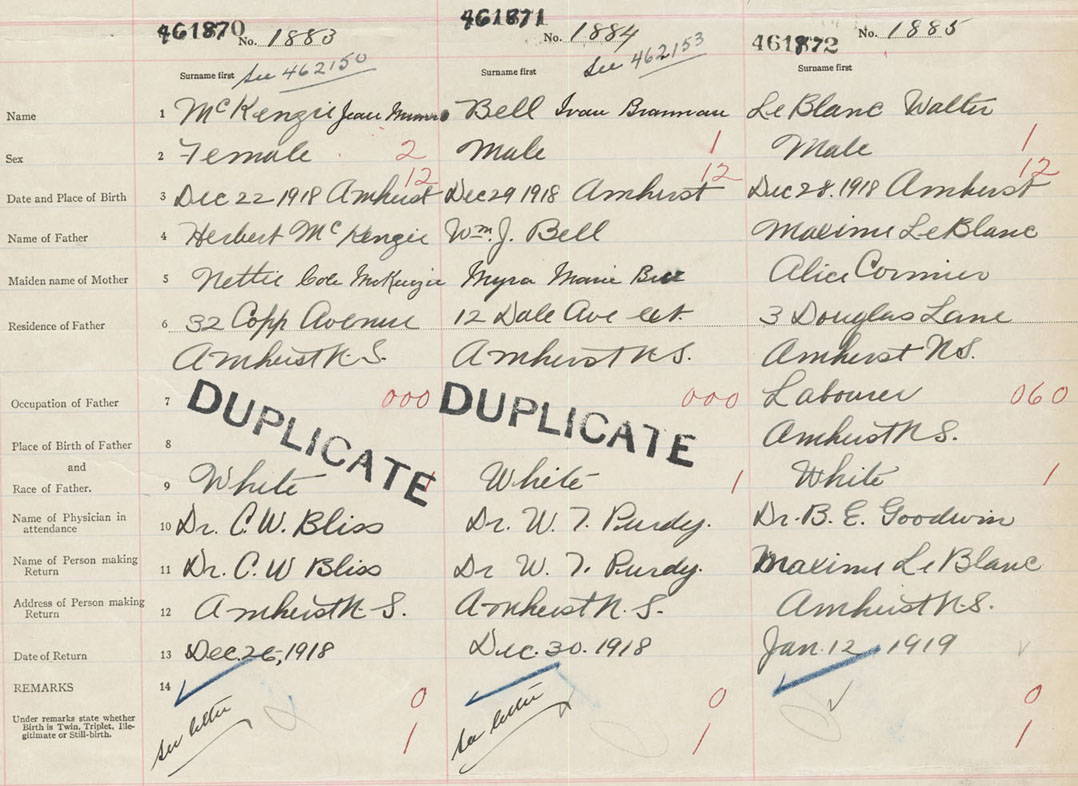 461870 No. 1883 461871 No. 1884 461872 No. 1885
Surname first See 462150 Surname first See 462153 Surname first
Name 1 McKenzie Jean Munro Bell Ivan Brannan LeBlanc Walter
Sex 2 Female 2 Male 1 Male 1
12 12 12
Date and Place of Birth 3 Dec 22 1918 Amherst Dec 29 1918 Amherst Dec 28. 1918 Amherst
Name of Father 4 Herbert McKenzie Wm. J. Bell Maxime LeBlanc
Maiden name of Mother 5 Nettie Cole McKenzie Myra Marie Alice Cormier
Residence of Father 6 32 Copp Avenue 12 Dale Ave 3 Douglas Lane
Amherst N.S. Amherst N S. Amherst N.S.
Occupation of Father 7 000 000 Labourer 060
DUPLICATE DUPLICATE
Place of Birth of Father 8 Amherst N S.
and
Race of Father. 9 White 1 White 1 White 1
Name of Physician in
attendance 10 Dr. C.W. Bliss Dr. W. T. Purdy. Dr. B. E. Goodwin
Name of Person making
Return 11 Dr. C. W Bliss Dr W. T. Purdy. Maxime LeBlanc
Address of Person making
Return 12 Amherst N. S. Amherst N. S. Amherst N.S.
Date of Return 13 Dec. 26, 1918 Dec. 30. 1918 Jan. 12 1919
REMARKS 14 0 0 0
Under remarks state whether
Birth is Twin, Triplet, Ille-
gitimate or Still-birth.
see letter 1 see letter 1 1